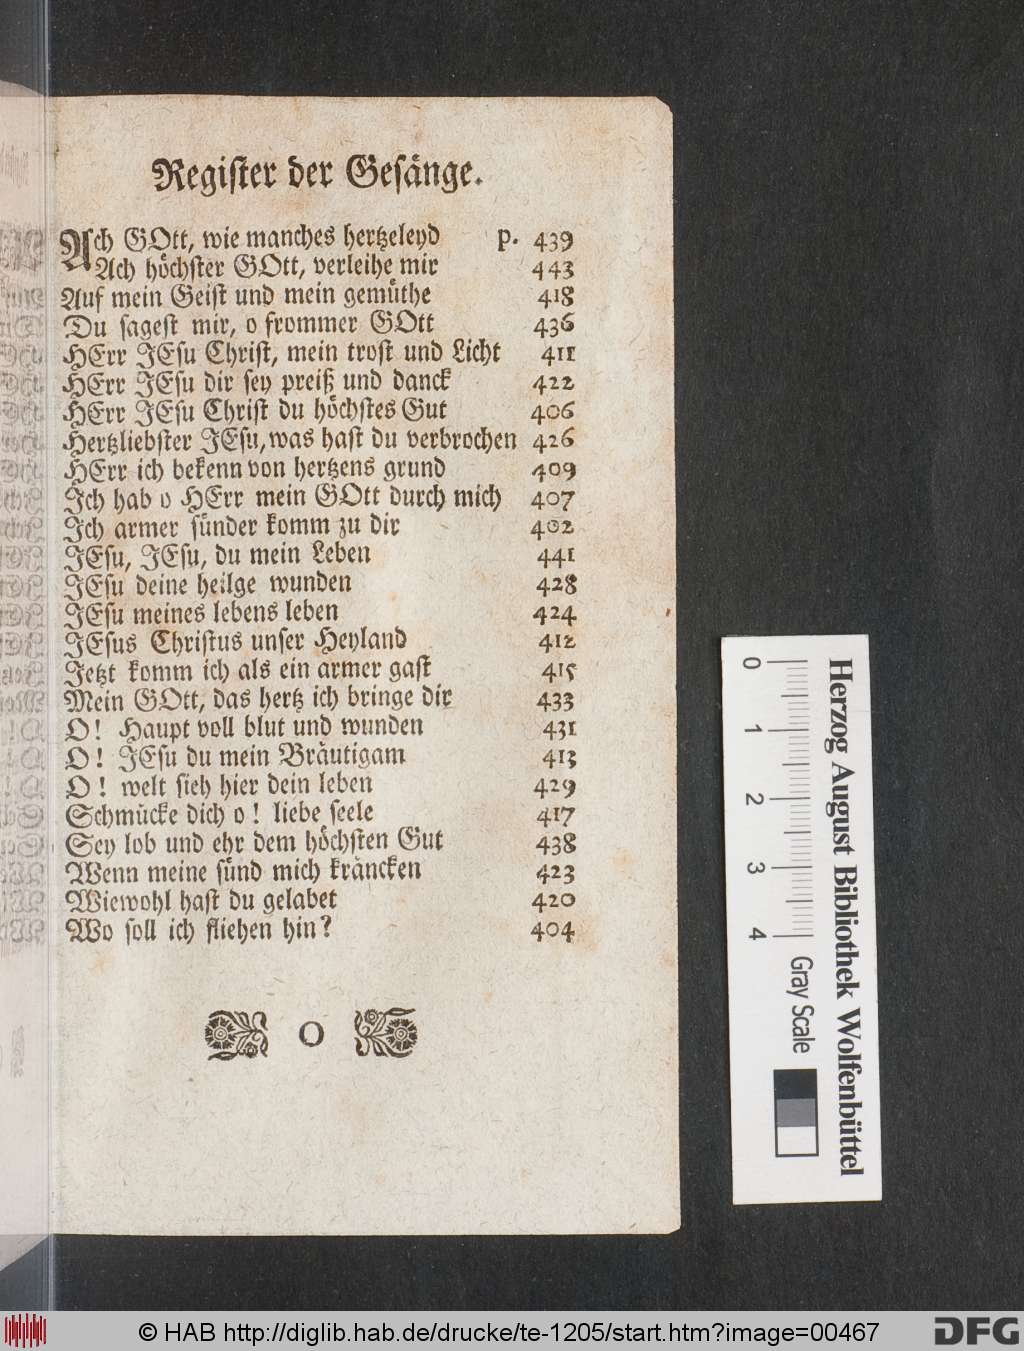 Regiſter der Geſänge.
Ach GOtt, wie manches hertzeleyd p. 439
Ach höchſter GOtt, verleihe mir 443
Auf mein Geiſt und mein gemüthe 418
Du ſageſt mir, o frommer GOtt 436
HErr JEſu Chriſt, mein troſt und Licht 411
HErr JEſu dir ſey preiß und danck 422
HErr JEſu Chriſt du höchſtes Gut 406
Hertzliebſter JEſu, was haſt du verbrochen 426
HErr ich bekenn von hertzens grund 409
Ich hab o HErr mein GOtt durch mich 407
Ich armer ſünder komm zu dir 402
JEſu, JEſu, du mein Leben 441
JEſu deine heilge wunden 428
JEſu meines lebens leben 424
JEſus Chriſtus unſer Heyland 412
Jetzt komm ich als ein armer gaſt 415
Mein GOtt, das hertz ich bringe dir 433
O! Haupt voll blut und wunden 431
O! JEſu du mein Bräutigam 413
O! welt ſieh hier dein leben 429
Schmücke dich o! liebe ſeele 417
Sey lob und ehr dem höchſten Gut 438
Wenn meine ſünd mich kräncken 423
Wiewohl haſt du gelabet 420
Wo ſoll ich fliehen hin? 404
O
Herzog August Bibliothek Wolfenbüttel
0 1 2 3 4 Gray Scale
© HAB http://diglib.hab.de/drucke/te-1205/start.htm?image=00467
DFG